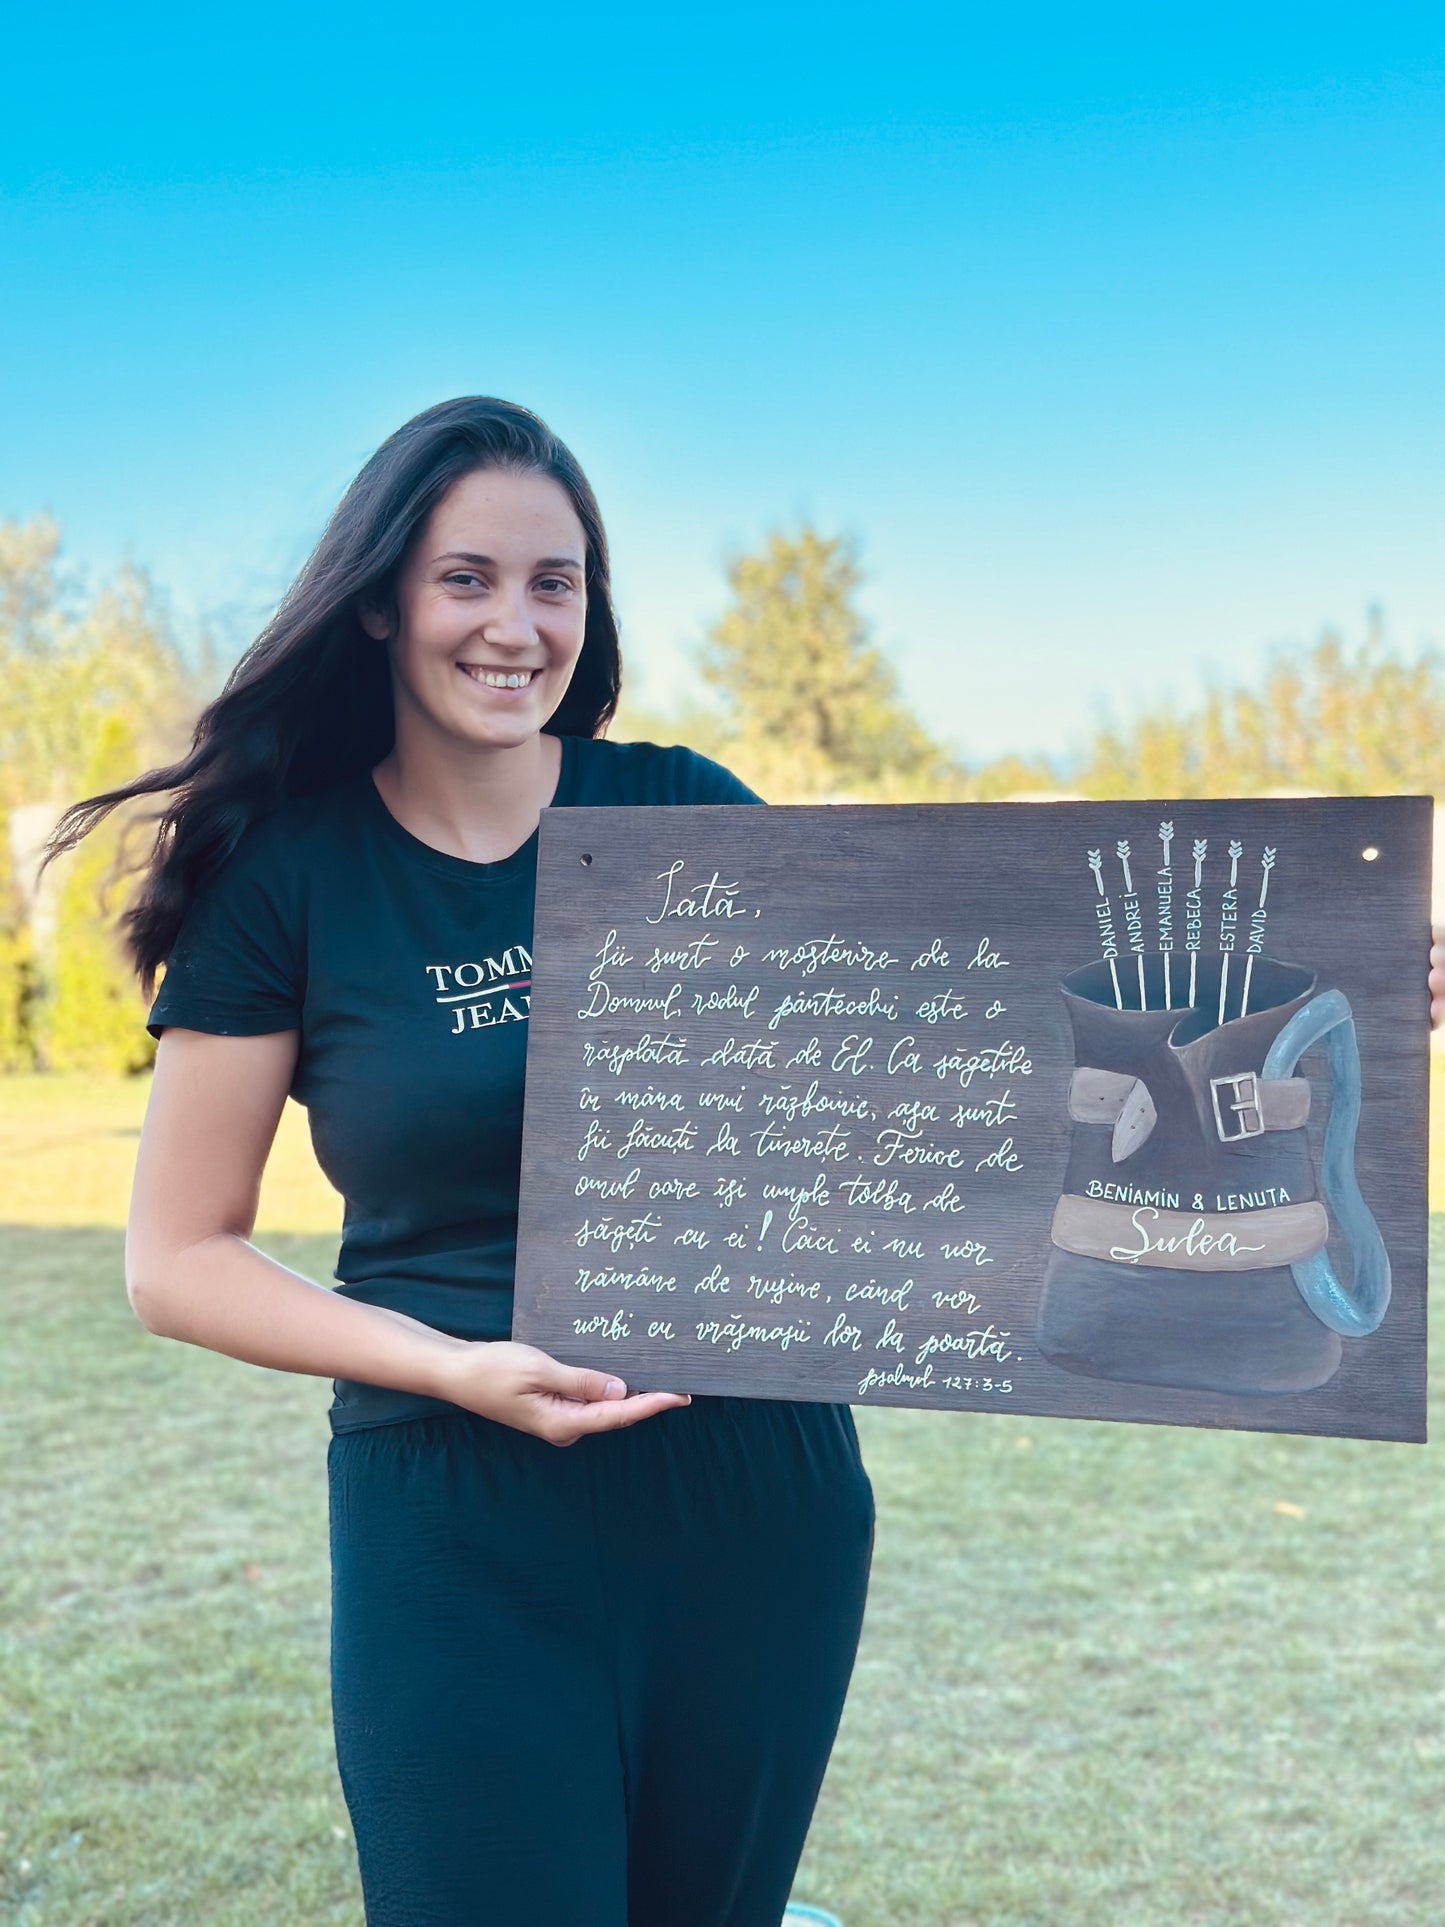 TOMM
JEA
Iată,
fii sunt o moștenire de la
Domnul, rodul pântecelui este o
răsplată dată de El. Ca săgețile
în mâna unui războinic, așa sunt
fii făcuți la tinerețe. Ferice de
omul care își umple tolba de
săgeți cu ei! Căci ei nu vor
rămâne de rușine, când vor
vorbi cu vrășmașii lor la poartă.
psalmul 127:3-5
DANIEL
ANDREI
EMANUELA
REBECA
ESTERA
DAVID
BENIAMIN & LENUȚA
Șulea